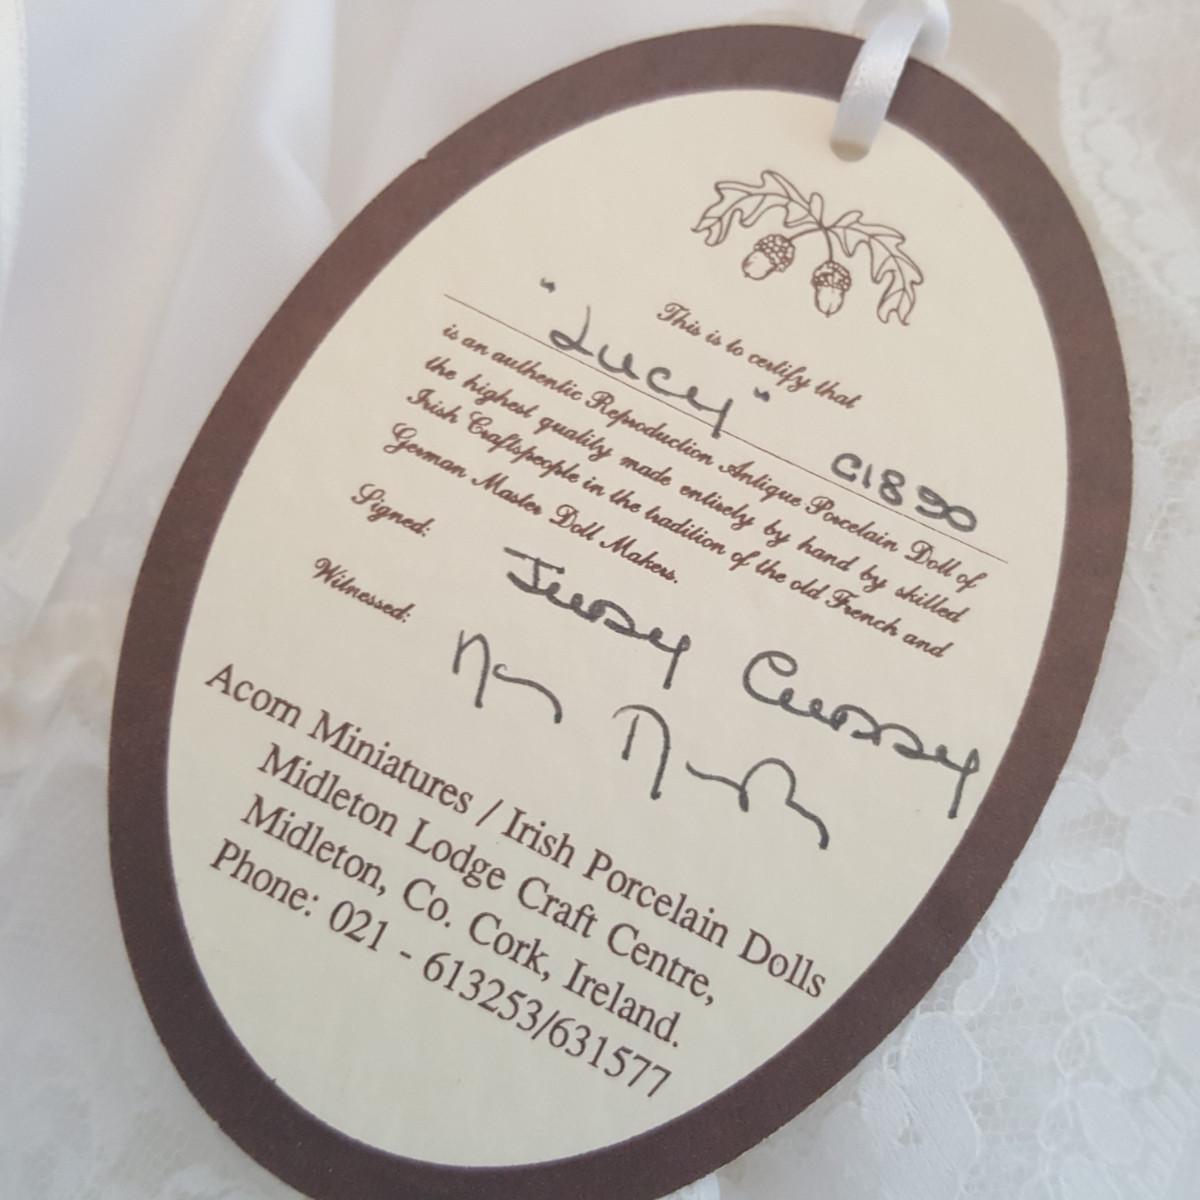 This is to certify that
"Lucy" C1890
is an authentic Reproduction Antique Porcelain Doll of
the highest quality made entirely by hand by skilled
Irish Craftspeople in the tradition of the old French and
German Master Doll Makers.
Signed:
Witnessed:
Acorn Miniatures / Irish Porcelain Dolls
Midleton Lodge Craft Centre,
Midleton, Co. Cork, Ireland.
Phone: 021 - 613253/631577